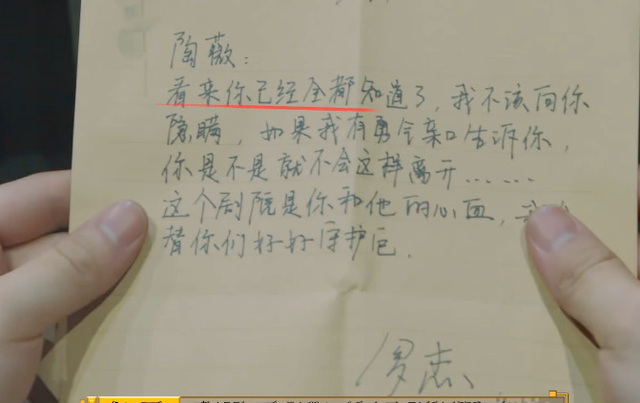 陶薇：
看来你已经全都知道了，我不该向你
隐瞒，如果我有勇气亲口告诉你，
你是不是就不会这样离开……
这个剧院是你和他的心血，
替你们好好守护它.
罗志